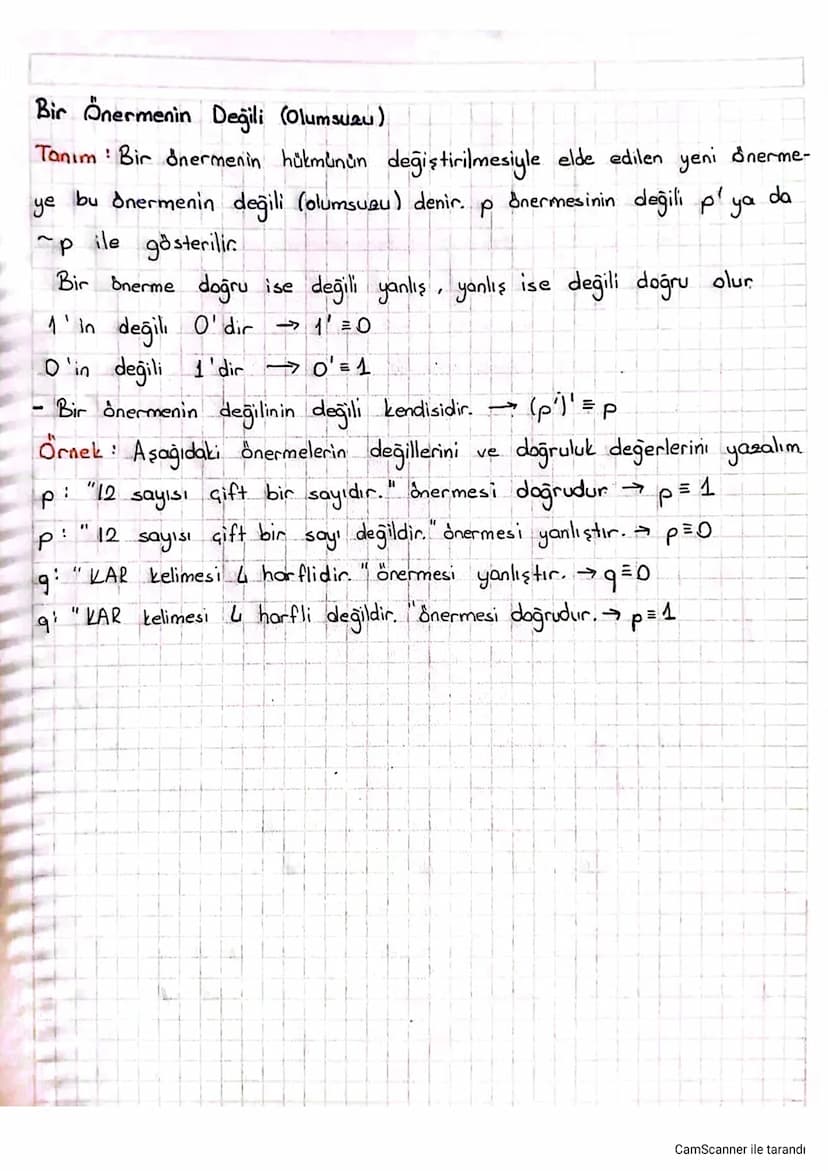 Bir Önermenin Değili (Olumsuzu)
Tanım : Bir önermenin hükmünün değiştirilmesiyle elde edilen yeni önerme-
ye bu önermenin değili (olumsuzu) denir. p önermesinin değili p' ya da
~p ile gösterilir.
Bir önerme doğru ise değili yanlış, yanlış ise değili doğru olur.
1'in değili 0'dir → 1' ≡ 0
0'in değili 1'dir → 0' = 1
- Bir önermenin değilinin değili kendisidir. → (p')' ≡ p
Örnek : Aşağıdaki önermelerin değillerini ve doğruluk değerlerini yazalım
p : "12 sayısı çift bir sayıdır." önermesi doğrudur → p ≡ 1
p : "12 sayısı çift bir sayı değildir." önermesi yanlıştır. → p ≡ 0
q : "KAR kelimesi 4 harflidir." önermesi yanlıştır. → q ≡ 0
q : "KAR kelimesi 4 harfli değildir." önermesi doğrudur. → p ≡ 1
CamScanner ile tarandı